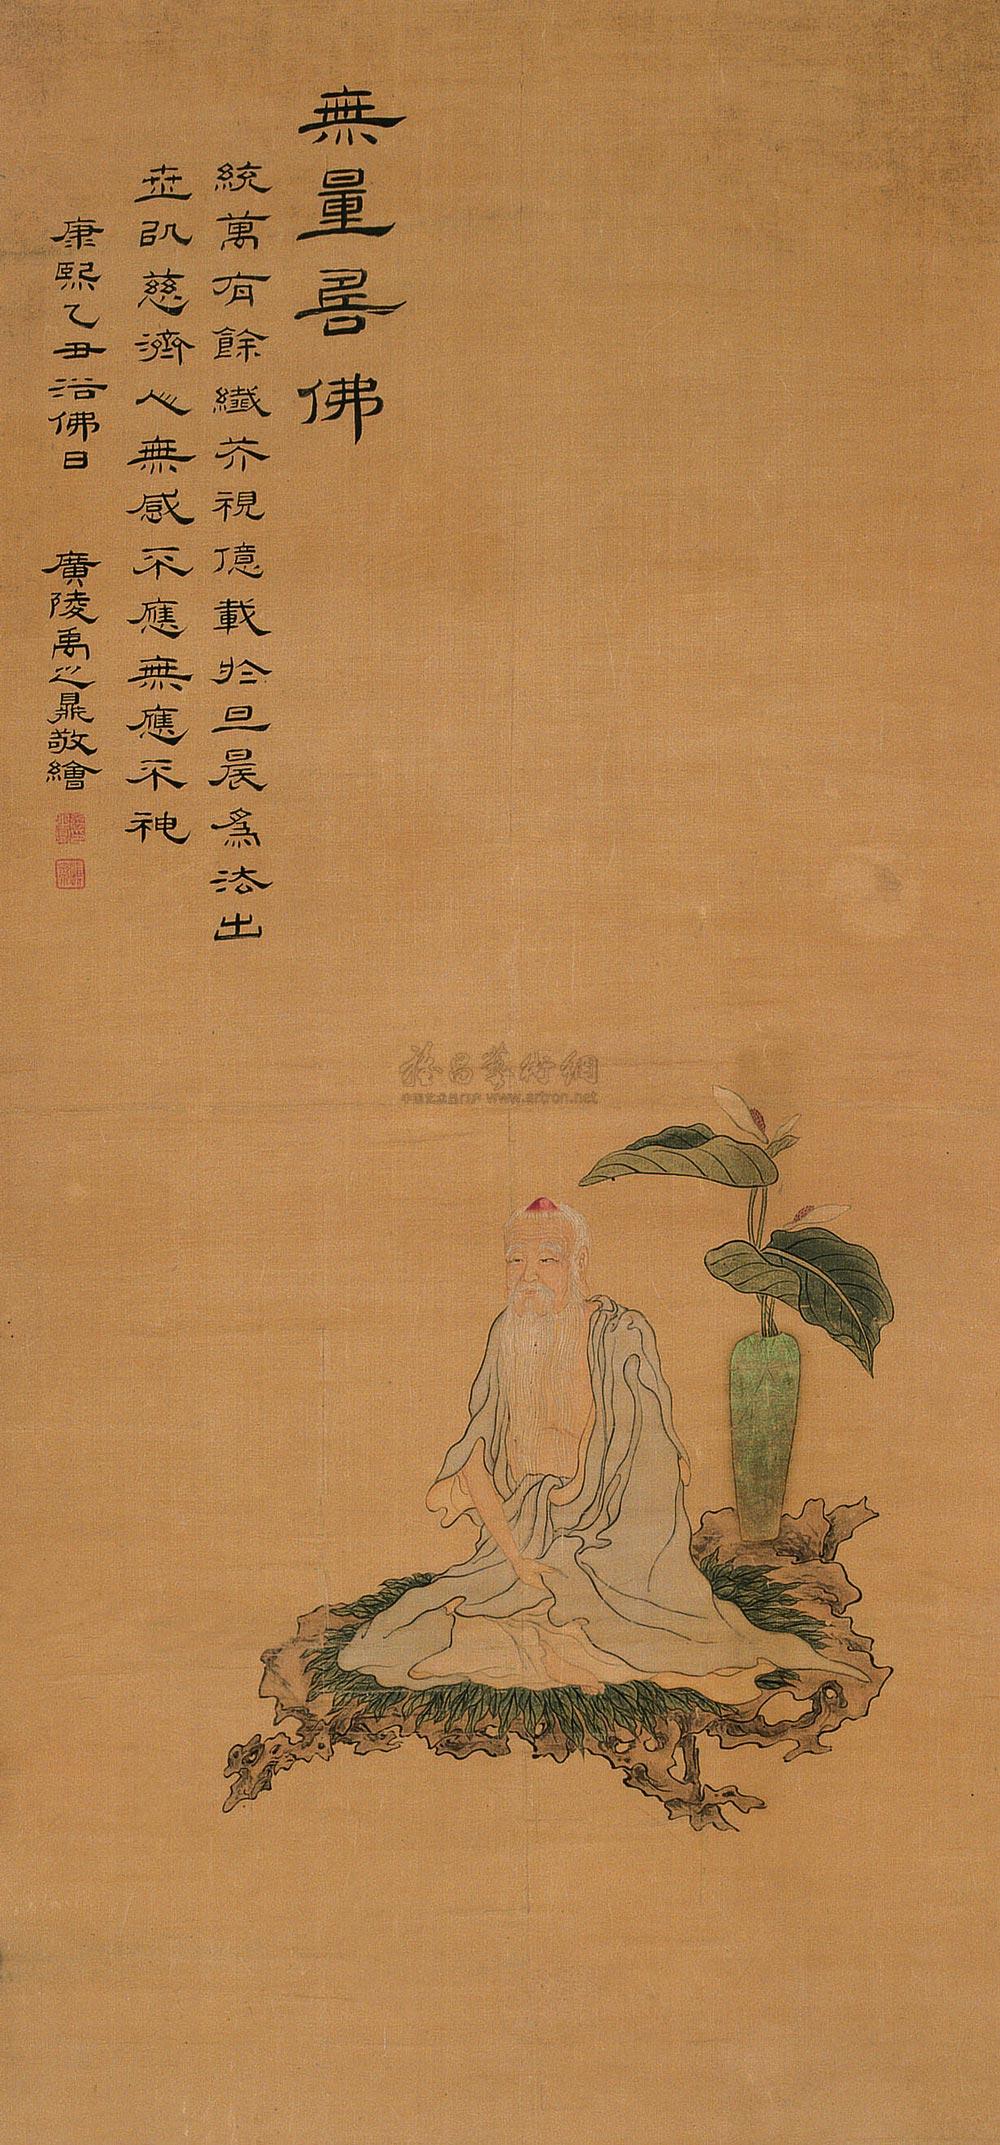 無量壽佛
統萬有餘纖芥視億載於旦晨爲法出
世以慈濟心無感不應無應不神
康熙乙丑浴佛日 廣陵禹之鼎敬繪
雅昌藝術網
中国艺术品门户 www.artron.net